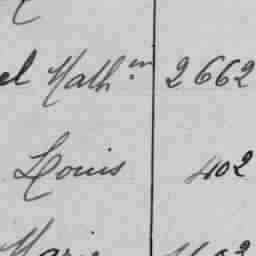 el Math.in 2662
Louis 402
Marie